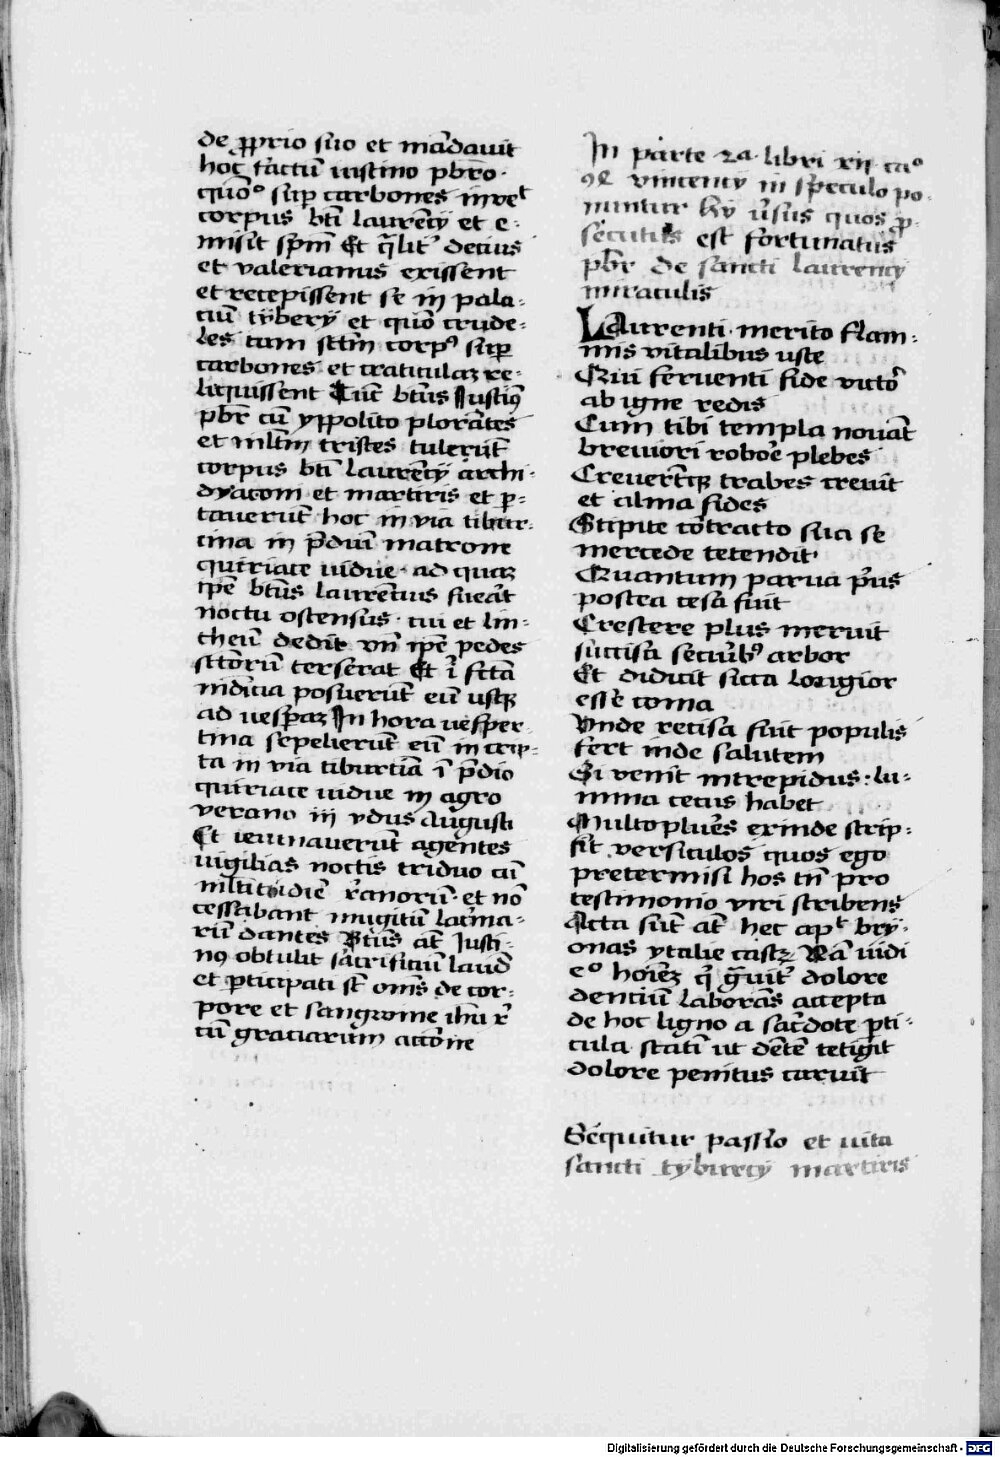 de ꝓprio suo et mādavit
hoc factū iustino pbrō.
quōº suꝑ carbones invēt
corpus bt̄i laurencÿ et e-
misit spm̄ Et q̄lit' decius
et valerianus exissent
et recepissent se in pala-
ciū tÿberÿ et quō crude-
les eum sc̄tm̄ corpꝰ suꝑ
carbones et craticulaꝫ re-
liquissent Tūc bt̄us Iustinꝰ
pbr̄ cū yppolito plorātes
et ml̄tm tristes tulerūt
corpus bt̄i laurencÿ archi-
dyaconi et martiris et p-
taverūt hoc in via tibur-
tina in p̄diū matrone
quiriace vidue. ad quaꝫ
ip̄e bt̄us laurēcius fuerāt
noctu ostensus. cui et lin-
theū dedit vn̄ ip̄e pedes
sc̄tōrū terserat Et ī sc̄ta
indūcia posuerūt eū usqꝫ
ad vesꝑaꝫ In hora vesper-
tina sepelierūt eū in crip-
ta in via tiburtīa ī p̄dio
quiriace vidue in agro
verano iij ydus Augusti
Et ieiunaverūt agentes
vigilias noctis triduo cū
ml̄titudiē xp̄ianorū. et nō
cessabant mugitū lac̄ma-
rū dantes Bt̄us āt Iusti-
nꝰ obtulit sac̄rificiū laud̄
et ꝑticipati sūt om̄s de cor-
pore et sanguine ihū x̄
cū graciarum acciōne
In parte 2a. libri xij. caº
9ᵒ vincencÿ in speculo po-
nuntur hÿ v̄sus quos ꝓ-
secutus est fortunatus
pbr̄ de sancti laurencÿ
miraculis
Laurenti. merito flam-
mis vitalibus uste
Qui ferventi fide victor̄
ab igne redis
Cum tibi templa novāt
breviori roboē plebes
Crevert̄qꝫ trabes crevit
et alma fides
Stipite cōtracto sua se
mercede tetendit
Quantum parva p̄us
postea cesa fuit
Crescere plus meruit
succisa secur̄ibꝰ arbor
Et didicit sicca longior
esse coma
Unde recisa fuit populis
fert inde salutem
Si venit intrepidus: lu-
mina cecus habet
Multo plur̄es exinde scrip-
sit versiculos quos ego
pretermisi hos tn̄ pro
testimonio viri scribens
Acta sūt āt hec apt̄ bry-
onas ytalie castꝫ Nā vidi
eº hoīeꝫ q̄ gr̄avit' dolore
denciū laborās accepta
de hoc ligno a sac̄dote ꝑti-
cula. statī ut dētē tetigit
dolore penitus caruit
Sequitur passio et vita
sancti tyburcÿ martiris
Digitalisierung gefördert durch die Deutsche Forschungsgemeinschaft - DFG